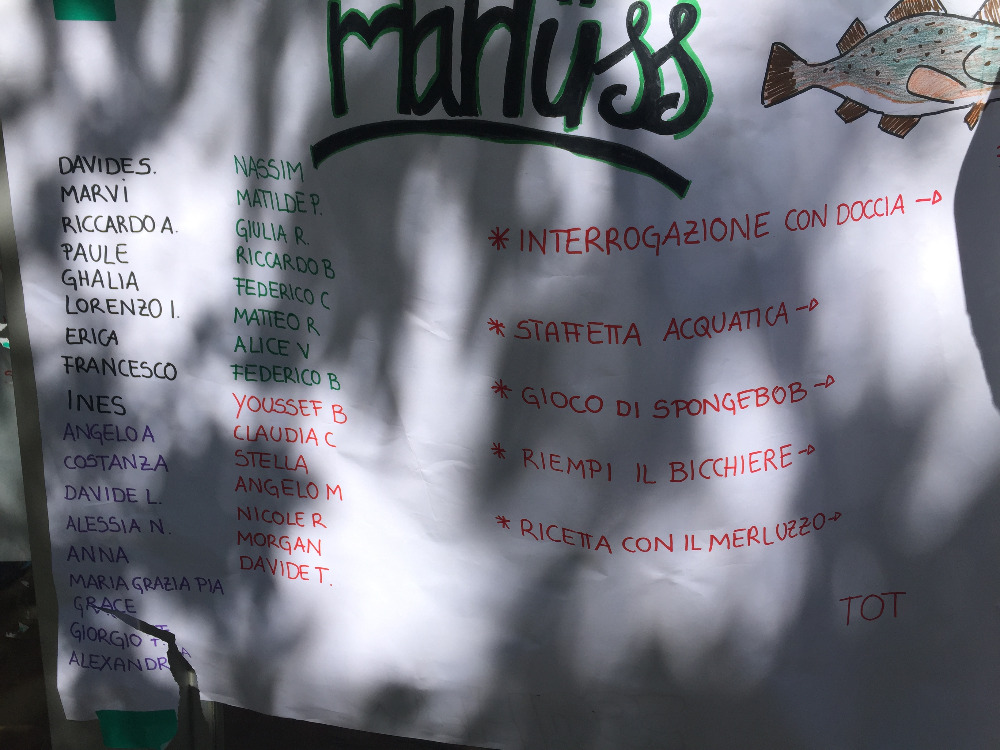 marlüss
DAVIDE S.
MARVÌ
RICCARDO A.
PAULE
GHALIA
LORENZO I.
ERICA
FRANCESCO
INES
ANGELO A
COSTANZA
DAVIDE L.
ALESSIA N.
ANNA
MARIA GRAZIA PIA
GRACE
GIORGIO T.
ALEXANDRA
NASSIM
MATILDE P.
GIULIA R.
RICCARDO B
FEDERICO C
MATTEO R
ALICE V
FEDERICO B
YOUSSEF B
CLAUDIA C
STELLA
ANGELO M
NICOLE R
MORGAN
DAVIDE T.
* INTERROGAZIONE CON DOCCIA →
* STAFFETTA ACQUATICA →
* GIOCO DI SPONGEBOB →
* RIEMPI IL BICCHIERE →
* RICETTA CON IL MERLUZZO →
TOT